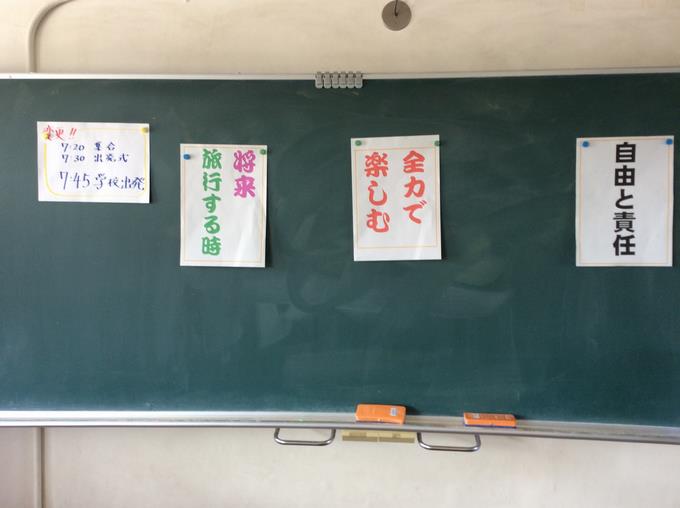 変更!!
7:20 集合
7:30 出発式
7:45 学校出発
将来
旅行する時
全力で
楽しむ
自由と責任